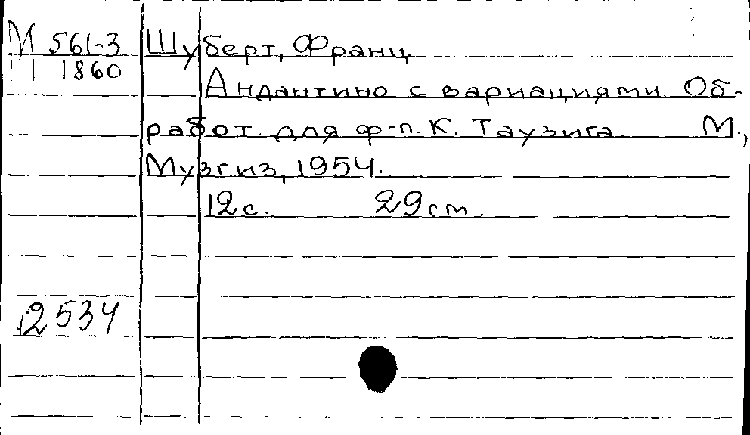 М 561-3 Шуберт, Франц
1860
Андантино с вариациями. Об-
работ. для ф-п. К. Таузига. М.,
Музгиз, 1954.
12с. 29см.
2534